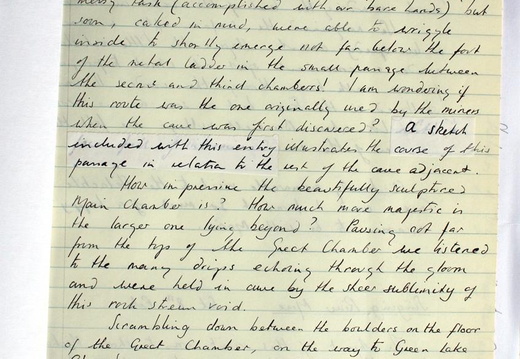 messy task (accomplished with our bare hands) but
soon, caked in mud, were able to wriggle
inside to shortly emerge not far below the foot
of the metal ladder in the small passage between
the second and third chambers! I am wondering if
this route was the one originally used by the miners
when the cave was first discovered? A sketch
included with this entry illustrates the course of this
passage in relation to the rest of the cave adjacent.
How impressive the beautifully sculptured
Main Chamber is? How much more majestic is
the larger one lying beyond? Pausing not far
from the top of the Great Chamber we listened
to the many drips echoing through the gloom
and were held in awe by the sheer sublimity of
this rock strewn void.
Scrambling down between the boulders on the floor
of the Great Chamber, on the way to Green Lake